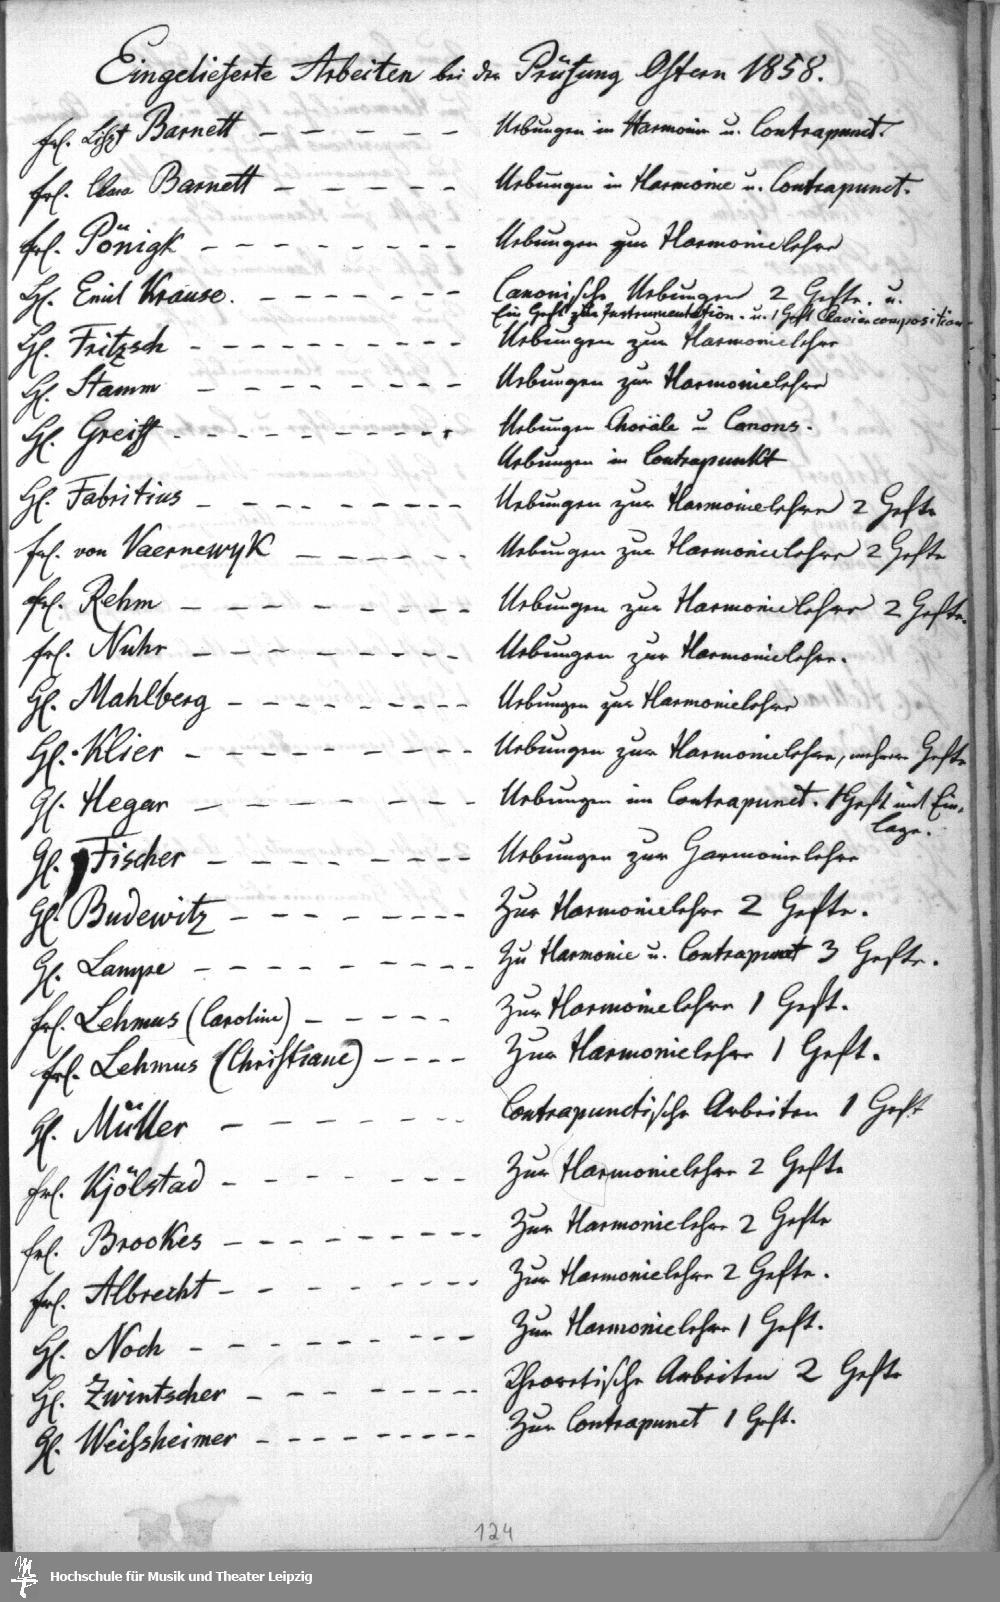 Eingelieferte Arbeiten bei der Prüfung Ostern 1858.
Frl. Barnett - - - - - Uebungen in Harmonie u. Contrapunct.
Frl. Clara Barnett - - - - - Uebungen in Harmonie u. Contrapunct.
Frl. Pönigk - - - - - - - - Uebungen zur Harmonielehre
H. Emil Krause. - - - - - - Canonische Uebungen 2 Hefte. u.
Ein Heft zur Instrumentation. u. 1 Heft Claviercomposition.
H. Fritzsch - - - - - - - - - Uebungen zur Harmonielehre
H. Stamm - - - - - - - - Uebungen zur Harmonielehre
H. Greiff - - - - - - - - - Uebungen Choräle u Canons.
Uebungen im Contrapunkt
H. Fabritius - - - - - - - - Uebungen zur Harmonielehre 2 Hefte
Frl. von Vaernewyk - - - - - - Uebungen zur Harmonielehre 2 Hefte
Frl. Rehm - - - - - - - - Uebungen zur Harmonielehre 2 Hefte.
Frl. Nuhr - - - - - - - - Uebungen zur Harmonielehre.
H. Mahlberg - - - - - - - - Uebungen zur Harmonielehre
H. Klier - - - - - - - - Uebungen zur Harmonielehre, mehrere Hefte
H. Hegar - - - - - - - Uebungen im Contrapunct. 1 Heft mit Ein-
lage.
H. Fischer - - - - - - - - Uebungen zur Harmonielehre
H. Budewitz - - - - - - - - Zur Harmonielehre 2 Hefte.
H. Lampe - - - - - - - - - Zu Harmonie u. Contrapunct 3 Hefte.
Frl. Lehmus (Caroline) - - - - - Zur Harmonielehre 1 Heft.
Frl. Lehmus (Christiane) - - - - Zur Harmonielehre 1 Heft.
H. Müller - - - - - - - Contrapunctische Arbeiten 1 Heft
Frl. Kjölstad - - - - - - - Zur Harmonielehre 2 Hefte
Frl. Brookes - - - - - - - - - Zur Harmonielehre 2 Hefte
Frl. Albrecht - - - - - - - - Zur Harmonielehre 2 Hefte.
H. Noch - - - - - - - - Zur Harmonielehre 1 Heft.
H. Zwintscher - - - - - - - - Theoretische Arbeiten 2 Hefte
H. Weißheimer - - - - - - - - Zur Contrapunct 1 Heft.
124
Hochschule für Musik und Theater Leipzig